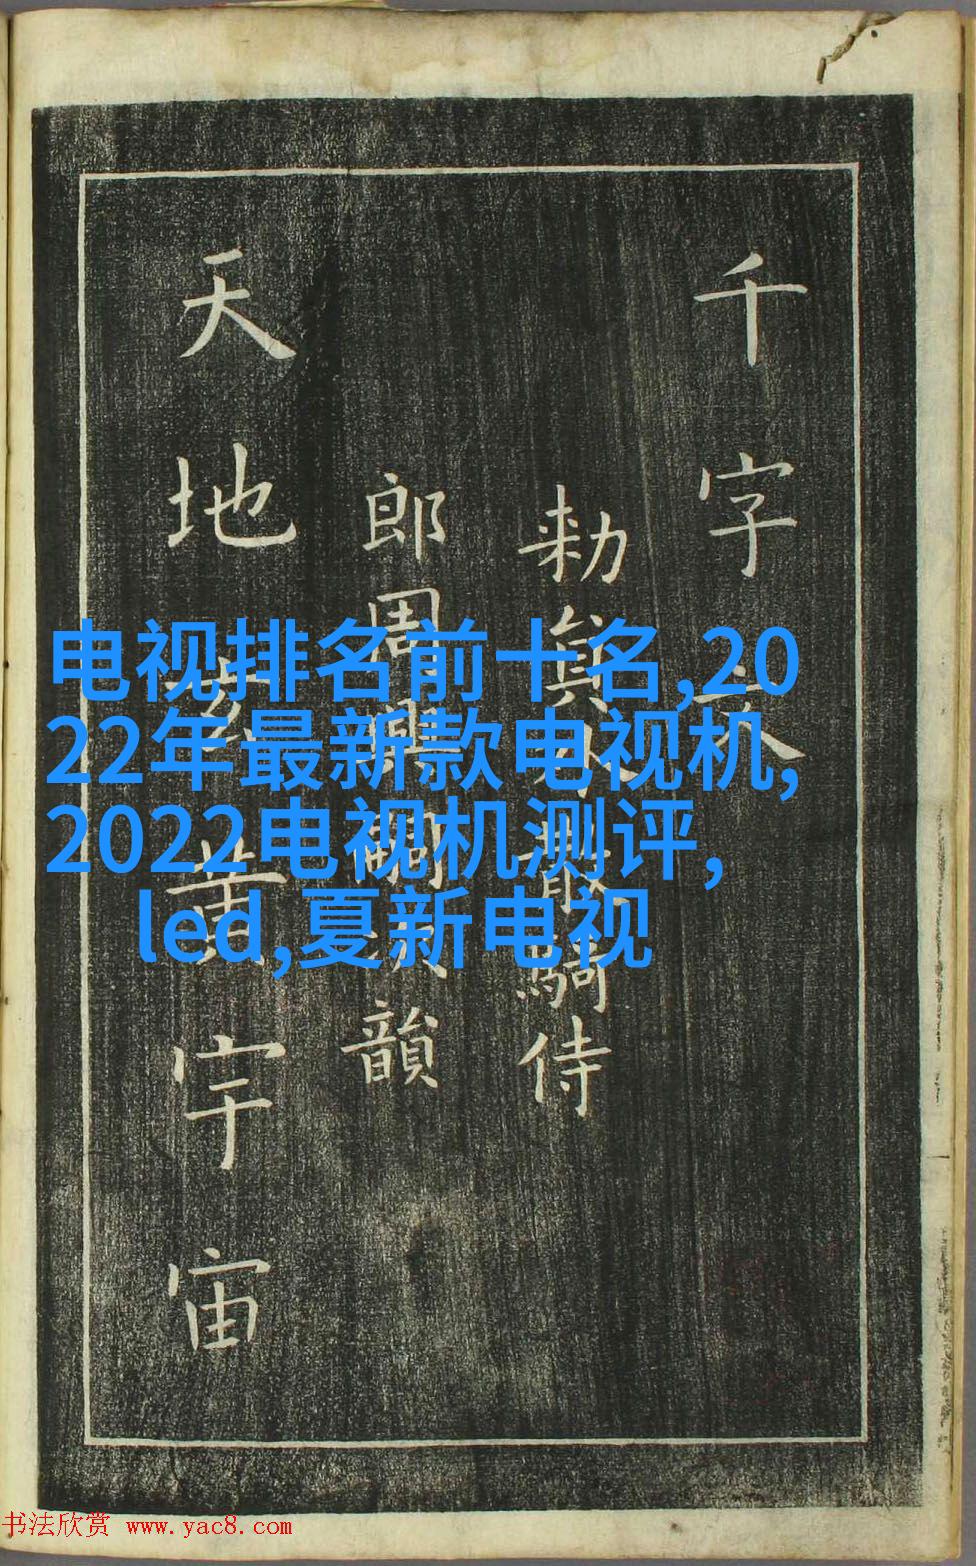 千字文
勑貟外散騎侍
郎周興嗣次韻
天地玄黃宇宙
电视排名前十名,20
22年最新款电视机,
2022电视机测评,
led,夏新电视
书法欣赏 www.yac8.com